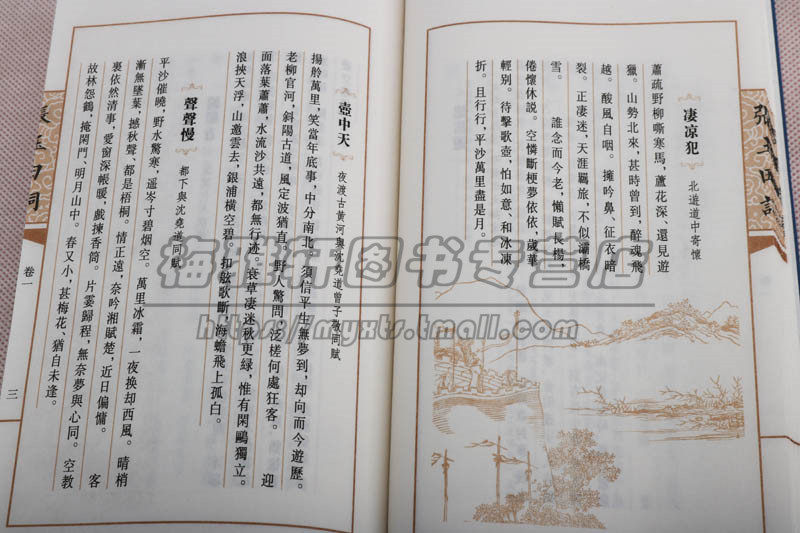 凄凉犯
北遊道中寄懷
蕭疏野柳嘶寒馬，蘆花深、還見遊
獵。山勢北來，甚時曾到，醉魂飛
越。酸風自咽。擁吟鼻、征衣暗
裂。正凄迷，天涯羈旅，不似灞橋
雪。　誰念而今老，懶賦長楊，
倦懷休說。空憐斷梗夢依依，歲華
輕別。待擊歌壺，怕如意、和冰凍
折。且行行，平沙萬里盡是月。
壺中天
夜渡古黄河與沈堯道曾子敬同賦
揚舲萬里，笑當年底事，中分南北。須信平生無夢到，却向而今遊歷。
老柳官河，斜陽古道，風定波猶直。野人驚問，泛槎何處狂客。　迎
面落葉蕭蕭，水流沙共遠，都無行迹。衰草凄迷秋更緑，惟有閑鷗獨立。
浪挾天浮，山邀雲去，銀浦横空碧。扣舷歌斷，海蟾飛上孤白。
聲聲慢
都下與沈堯道同賦
平沙催曉，野水驚寒，遥岑寸碧烟空。萬里冰霜，一夜换却西風。晴梢
漸無墜葉，撼秋聲、都是梧桐。情正遠，奈吟湘賦楚，近日偏慵。　客
裏依然清事，愛窗深帳暖，戲揀香筒。片霎歸程，無奈夢與心同。空教
故林怨鶴，掩閑門、明月山中。春又小，甚梅花、猶自未逢。
卷一
三
https://myxts.tmall.com